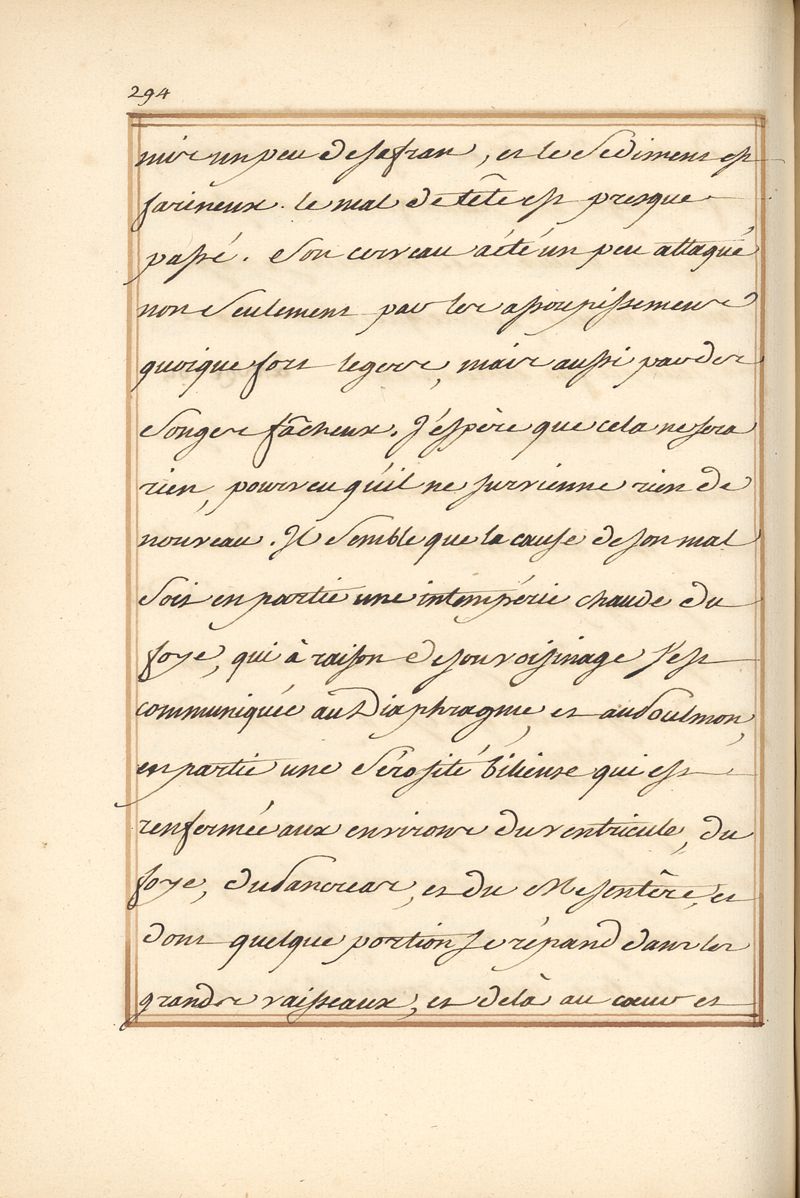 294
mis un peu de safran, et le Sediment est
farineux. le mal de tête est presque
passé. Son cerveau a été un peu attaqué
non Seulement par les assoupissements
quoique fort legers, mais aussi par des
Songes fâcheux. J'espère que cela ne sera
rien, pourveu qu'il ne survienne rien de
nouveau. Il Semble que la cause de son mal
Soit en partie une intempérie chaude du
foye, qui à raison de son voisinage s'est
communiquée au Diaphragme, et au Poulmon,
en partie une Sérosité bilieuse qui est
renfermée aux environs du ventricule, du
foye, du Pancreas, et du Mesentère, et
dont quelque portion se répand dans les
grands vaisseaux, et delà au cœur et